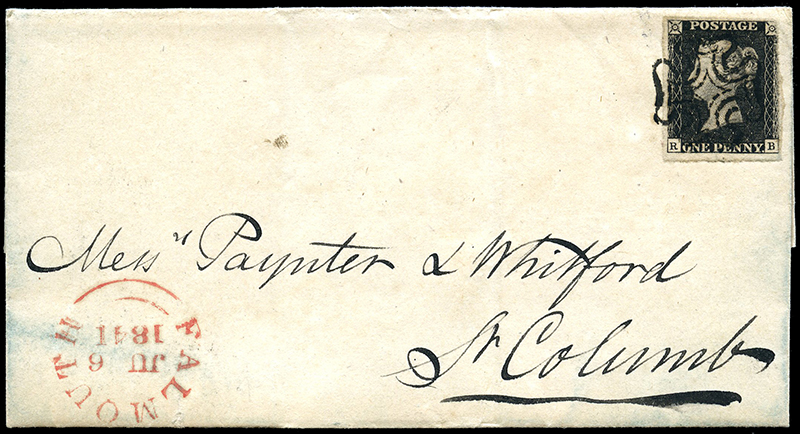 POSTAGE
R ONE PENNY B
Mess<sup>rs</sup> Paynter & Whitford
St Columb
FALMOUTH
JU 9
1841